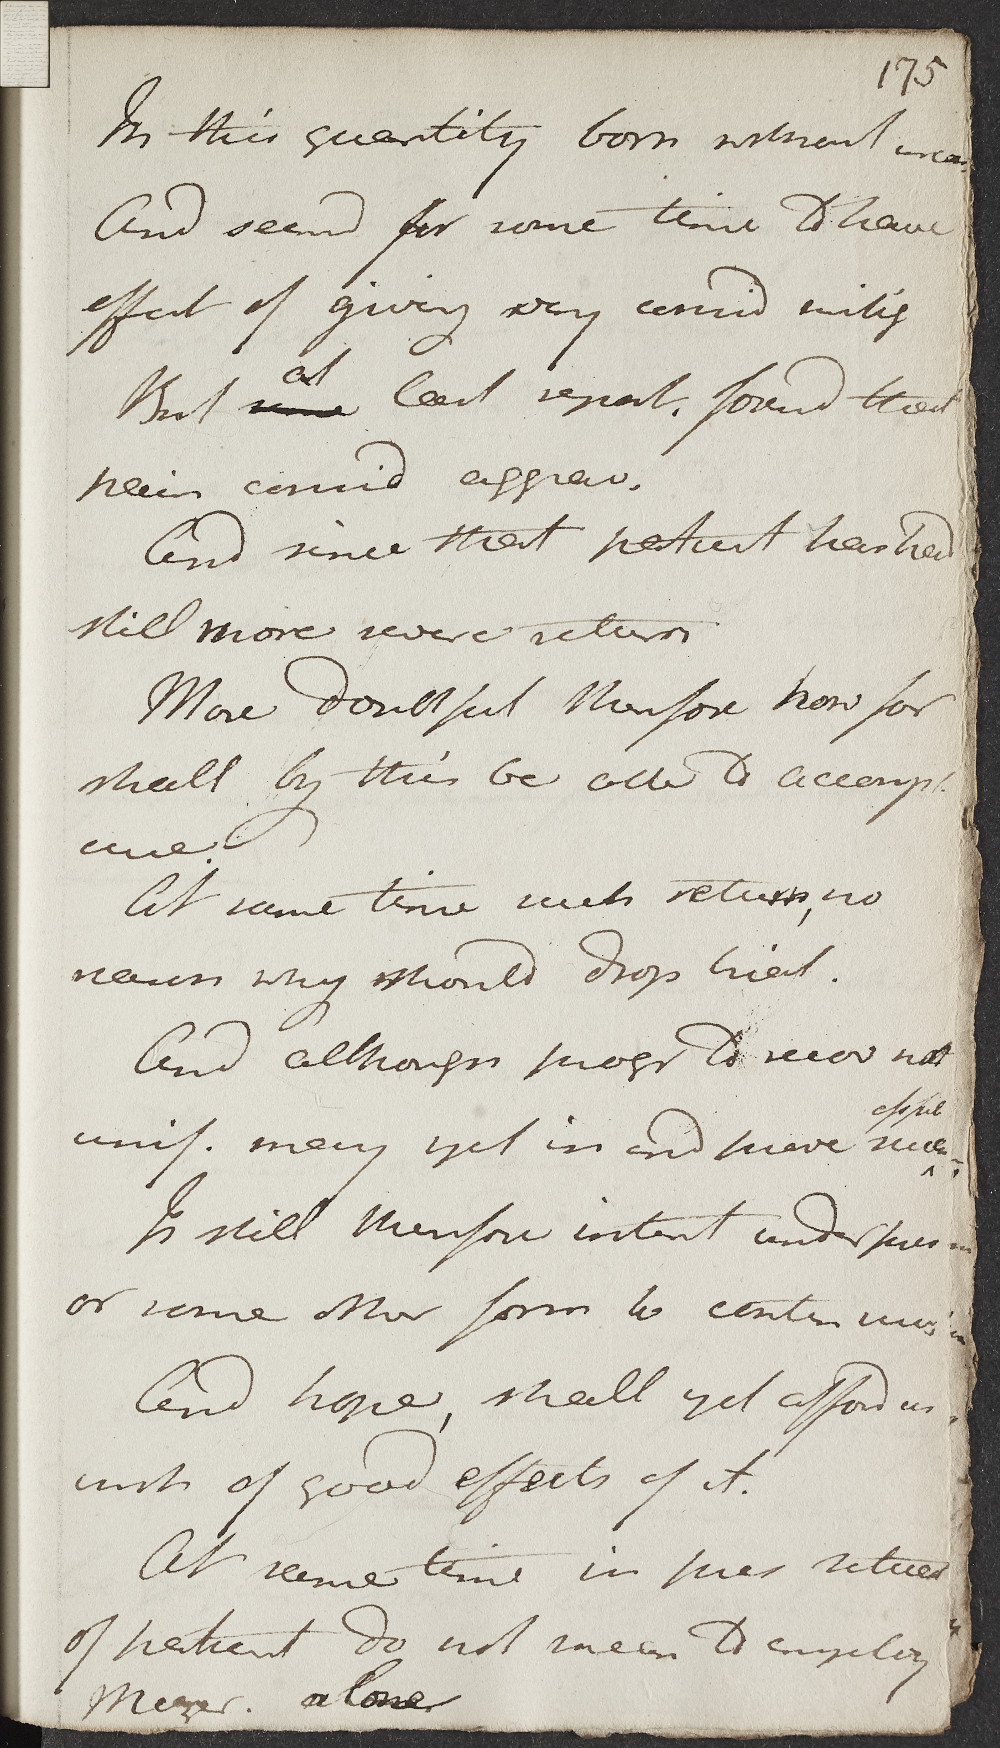 175
In this quantity born without
And seemd for some time to have
effect of giving very consid mitig
But at last report. found that
pain consid aggrav.
And since that patient has had
still more severe return
More doubtful therefore how far
shall by this be able to accompl.
cure.
At same time such return, no
reason why should drop trial.
And although progr to recov not
unif. may yet in end prove
Is still therefore intent under
or some other form to contin
And hope, shall yet afford us
inst of good effects of it.
At same time in pres
of patient do not mean to employ
Mezer. alone